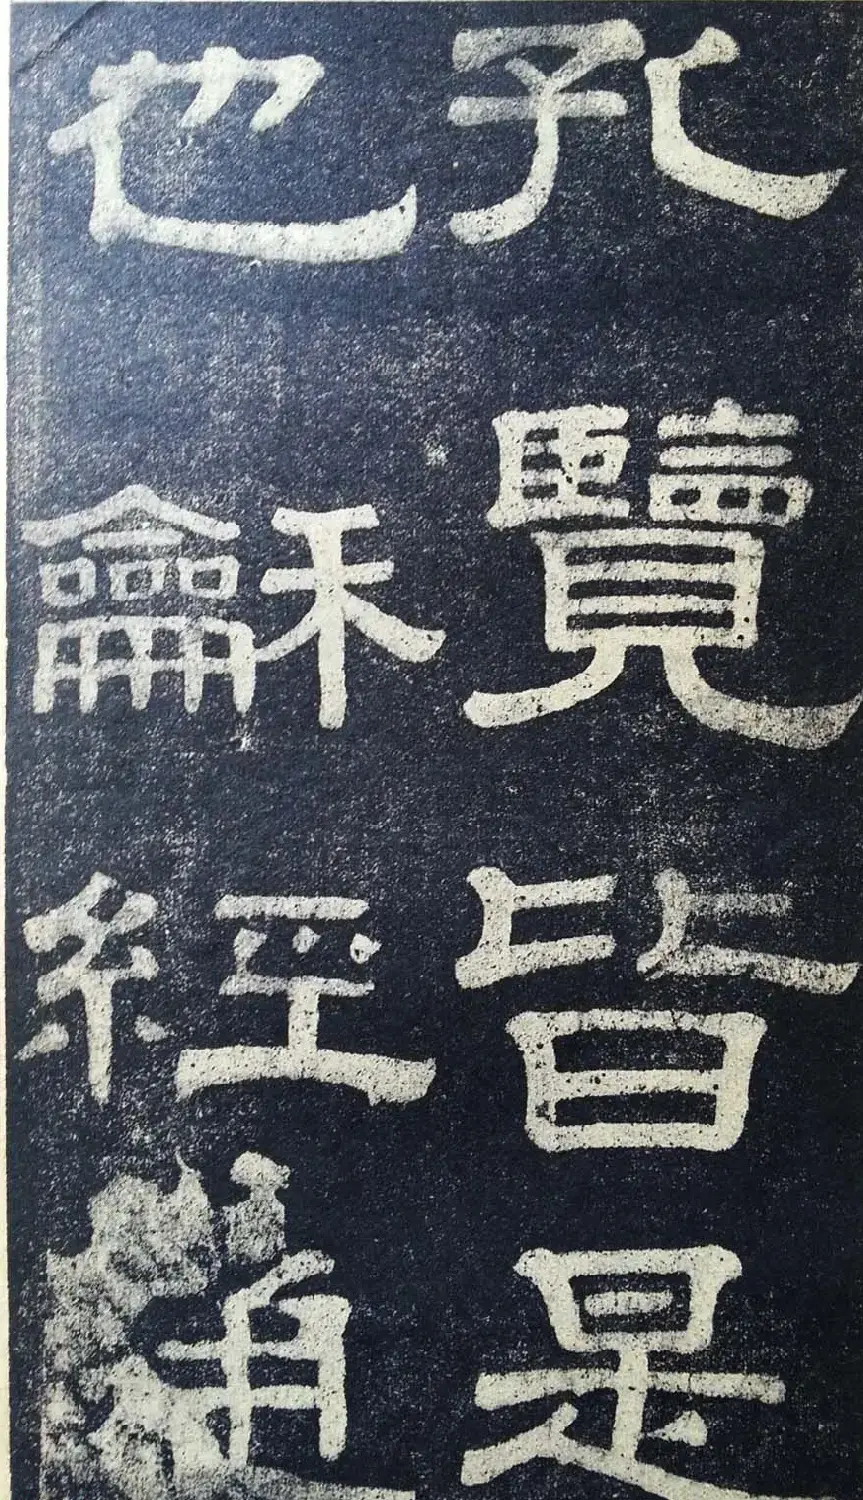 孔覽皆是
也龢經通